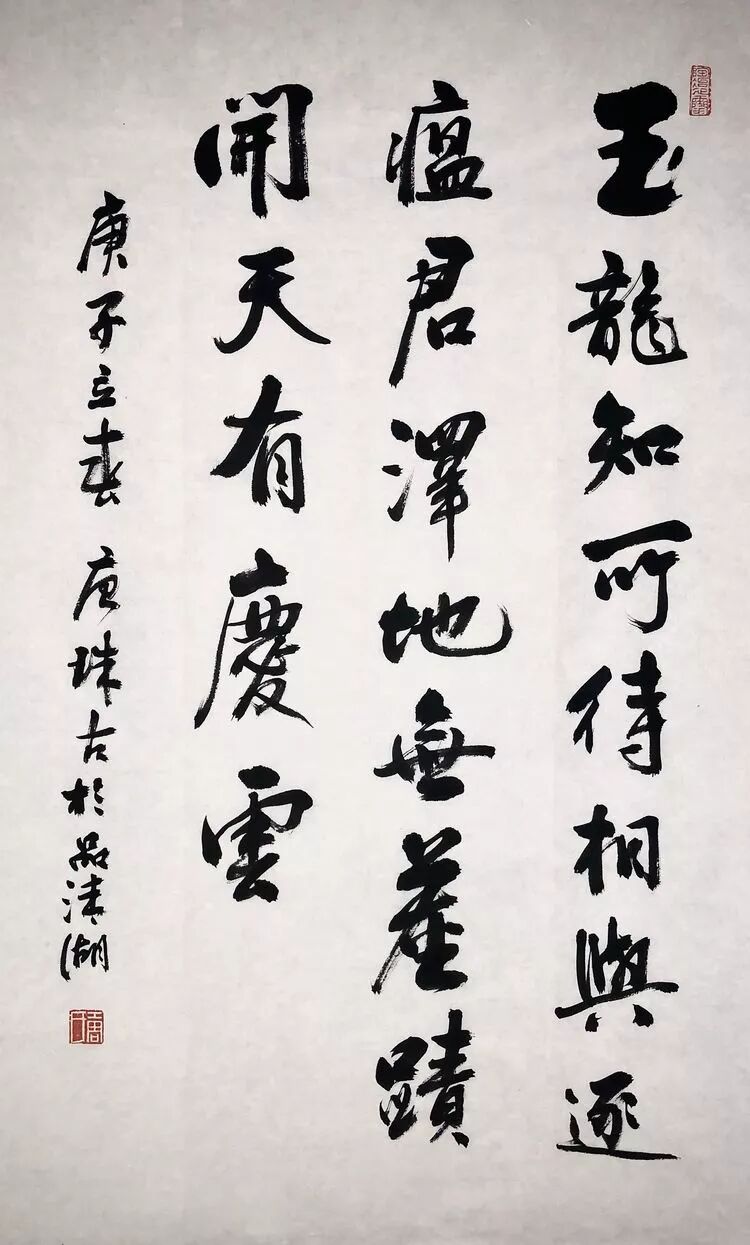 玉龍知所待相與逐
瘟君澤地無塵蹟
開天有慶雲
庚子立春 唐珠古於品清湖